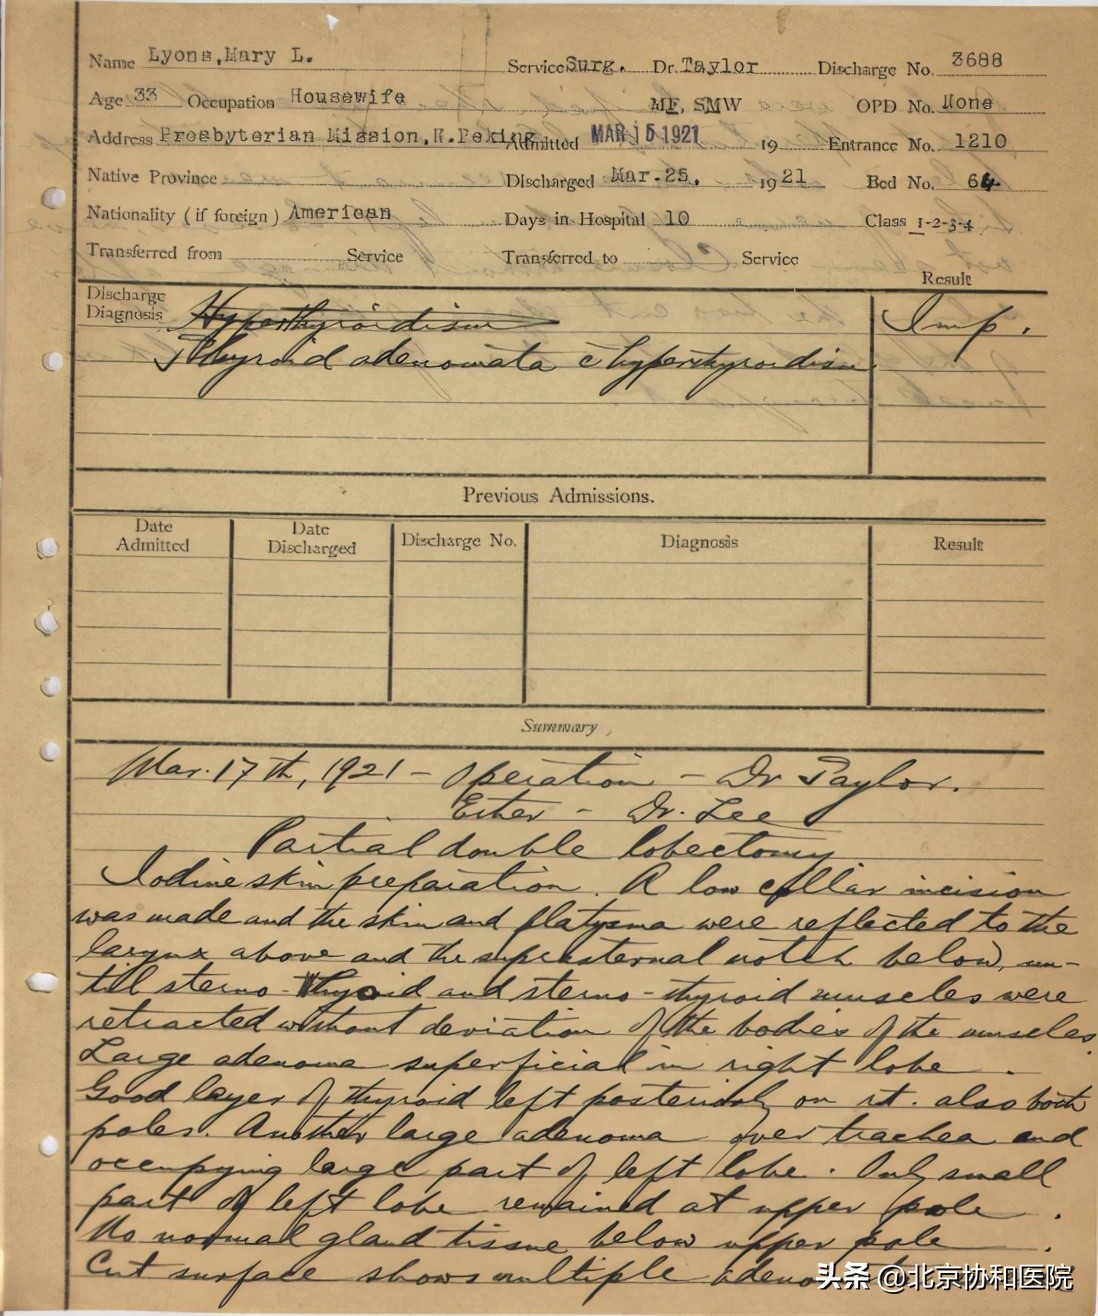 Name Lyons,Mary L. Service Surg. Dr. Taylor Discharge No. 3688
Age 33 Occupation Housewife MF, SMW OPD No. None
Address Presbyterian Mission,N.Peking Admitted MAR 15 1921 19 Entrance No. 1210
Native Province Discharged Mar.25, 1921 Bed No. 64
Nationality (if foreign) American Days in Hospital 10 Class 1-2-3-4
Transferred from Service Transferred to Service
Result
Discharge Diagnosis Hyperthyroidism Imp.
Thyroid adenomata c hyperthyroidism
Previous Admissions.
Date Admitted Date Discharged Discharge No. Diagnosis Result
Summary
Mar. 17th, 1921 - Operation - Dr Taylor.
Ether - Dr. Lee
Partial double lobectomy
Iodine skin preparation. A low collar incision
was made and the skin and platysma were reflected to the
larynx above and the suprasternal notch below, un-
til sterno-thyoid and sterno-thyroid muscles were
retracted without deviation of the bodies of the muscles.
Large adenoma superficial in right lobe.
Good layer of thyroid left posteriorly on rt. also both
poles. Another large adenoma over trachea and
occupying large part of left lobe. Only small
part of left lobe remained at upper pole.
No normal gland tissue below upper pole.
Cut surface shows multiple
头条 @北京协和医院